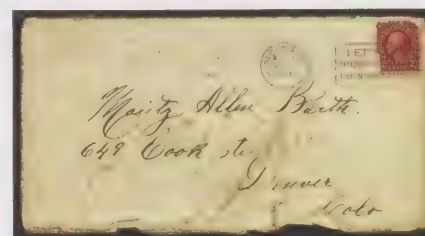 Moritz Allen Barth.
649 Cook st.
Denver
Colo
LET
2